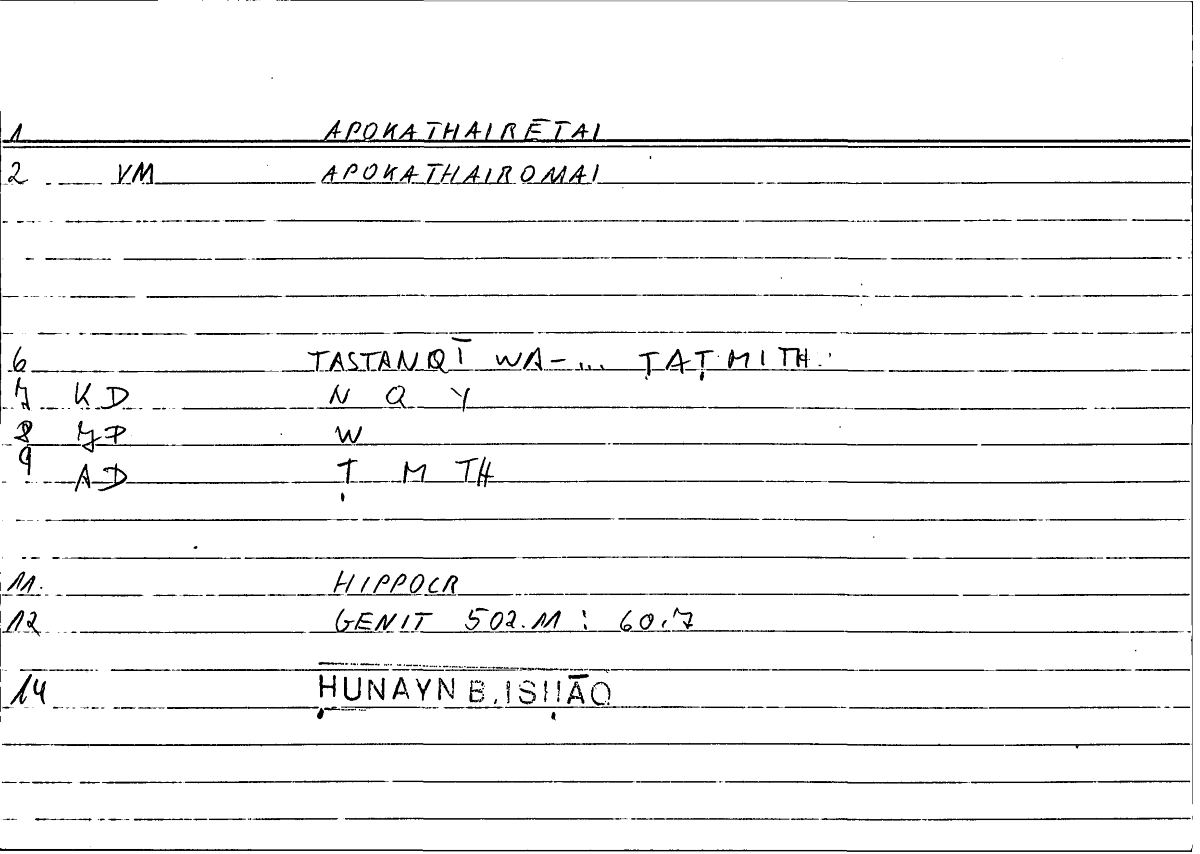 1 APOKATHAIRĒTAI
2 VM APOKATHAIROMAI
6 TASTANQĪ WA-... ṬAṬMITH
7 KD N Q Y
8 JP W
9 AD Ṭ M TH
11. HIPPOCR
12 GENIT 502.11 : 60.7
14 ḤUNAYN B. ISḤĀQ